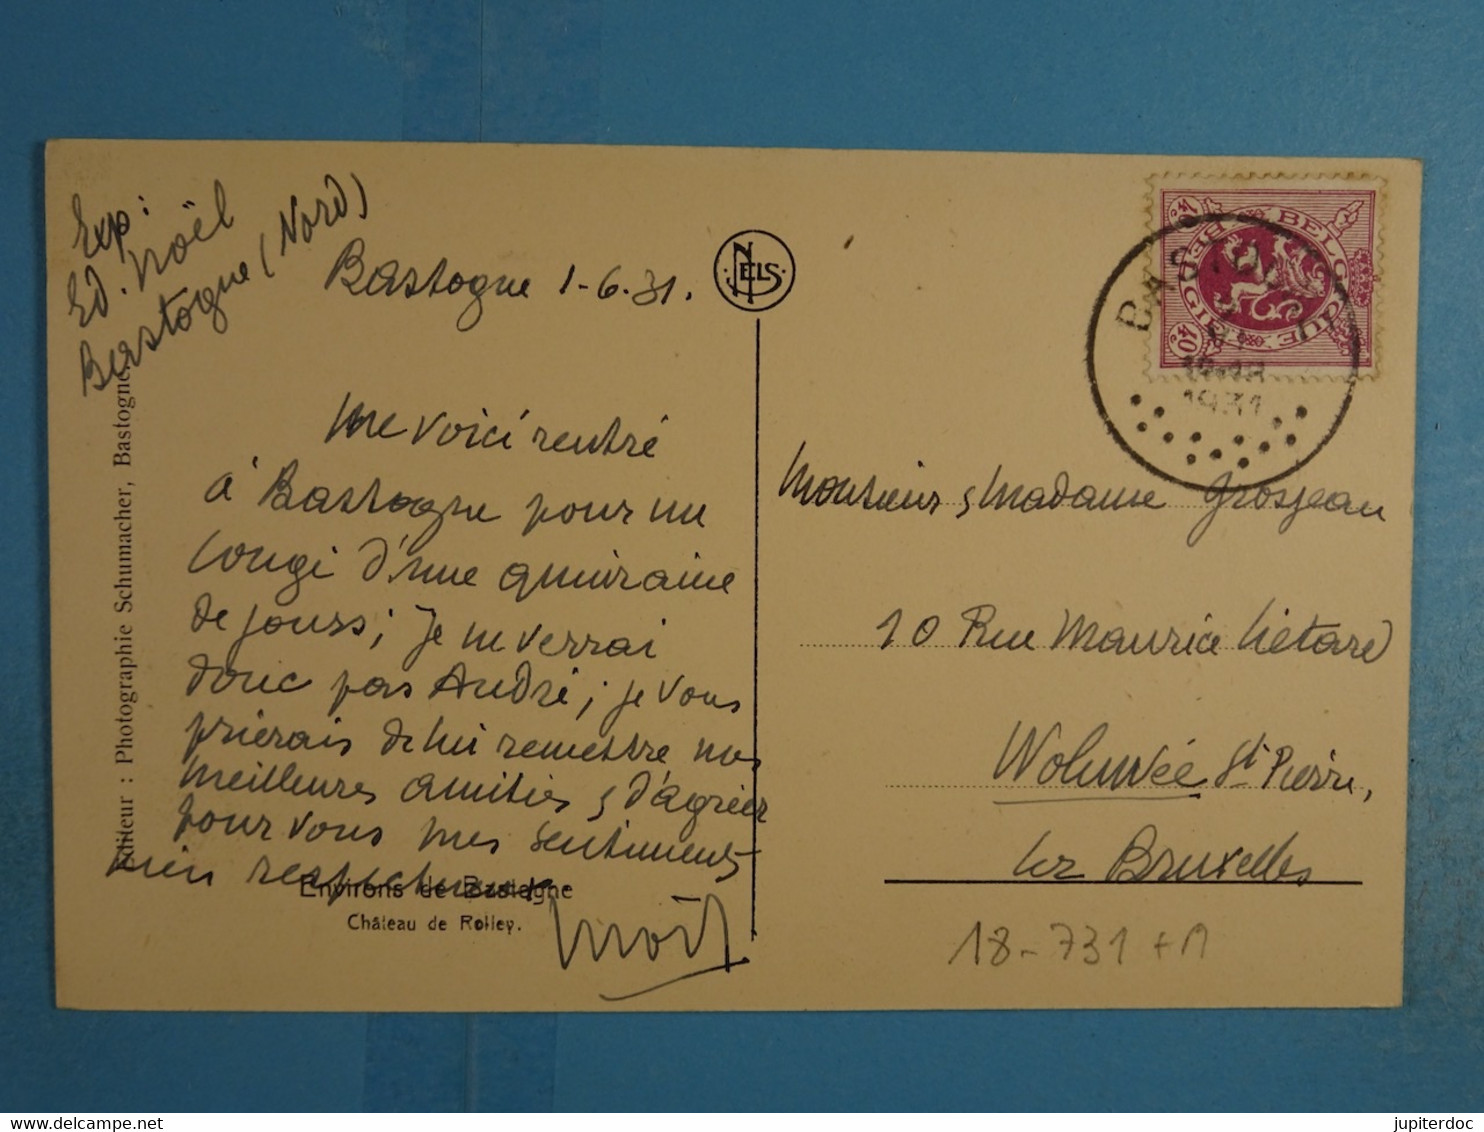 Exp:
Ed. Noël
Bastogne (Nord)
Bastogne 1-6-31.
NELS
Me voici rentré
à Bastogne pour un
congé d'une quinzaine
de jours; je ne verrai
donc pas André; je vous
prierais de lui remettre mes
meilleures amitiés & d'agréer
pour vous mes sentiments
bien respectueux
Noël
Editeur : Photographie Schumacher, Bastogne.
Environs de Bastogne
Château de Rolley.
BELGIQUE
BELGIE
40c
BASTOGNE
1931
Monsieur & Madame Grosjean
10 Rue Maurice Liétard
Woluwée St Pierre,
lez Bruxelles
18-731+A
www.delcampe.net
jupiterdoc